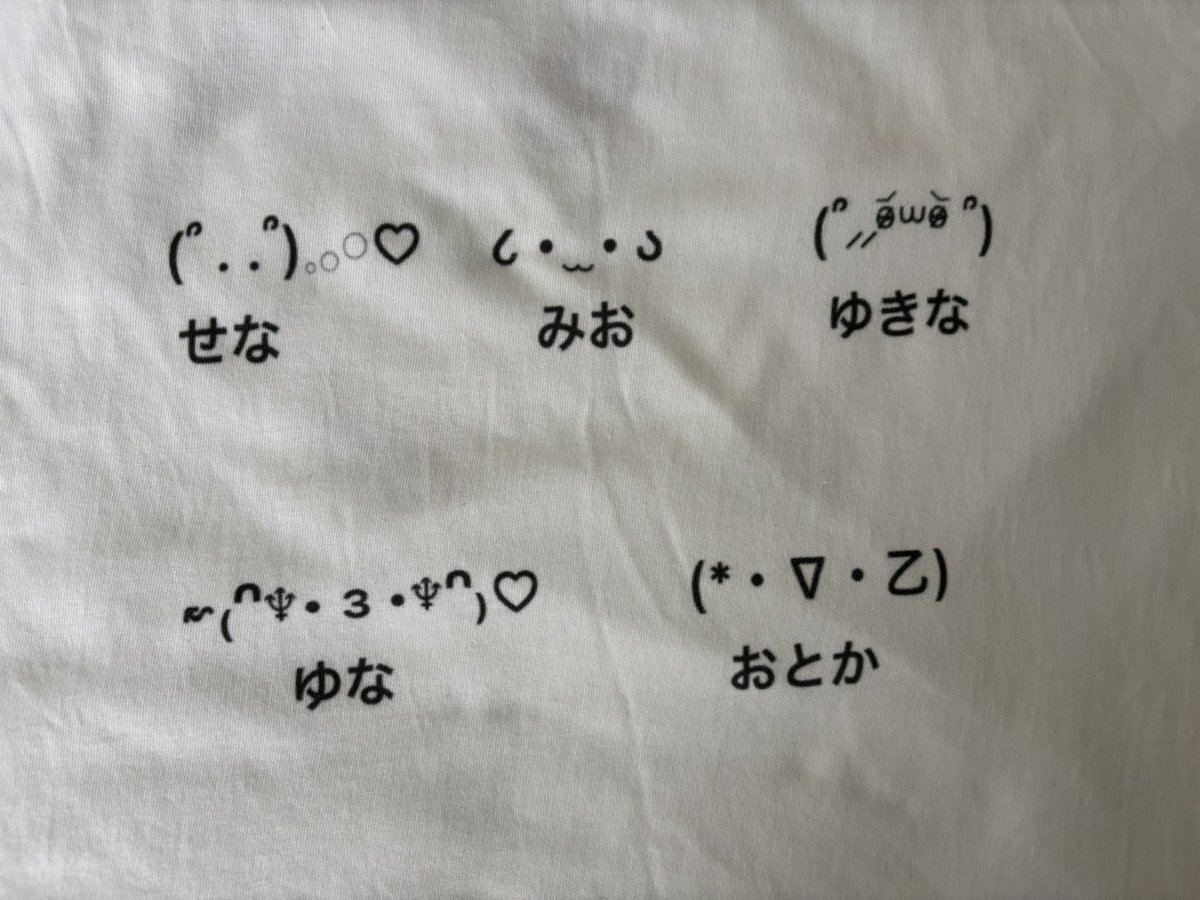 (ᐢ. .ᐢ)｡₀○♡ ૮ • ﹏ • ა (ᐢ⸝⸝ɞ̴̶̷ωɞ̴̶̷ᐢ)
せな みお ゆきな
~₍ᐢ♆・з・♆ᐢ₎♡ (*・∇・乙)
ゆな おとか